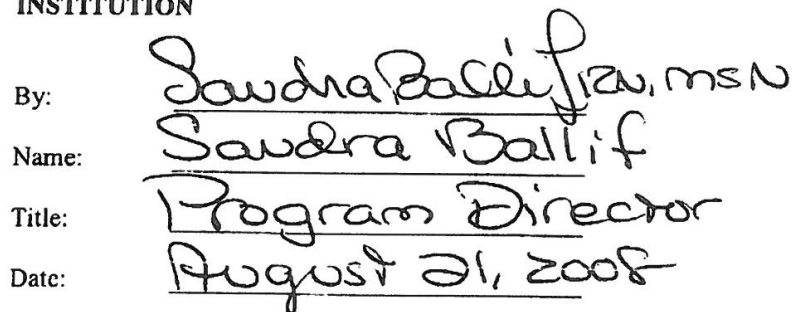 INSTITUTION
By: Sandra Ballif RN, MSN
Name: Sandra Ballif
Title: Program Director
Date: August 21, 2008